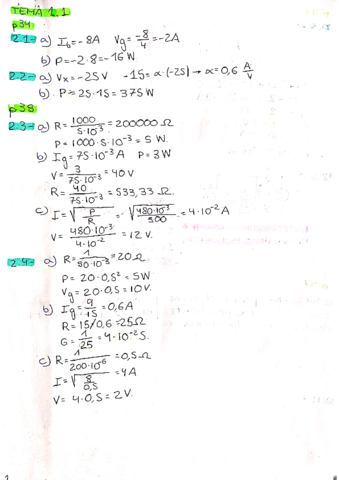 TEMA 1.1
p34
2.1- a) I6 = -8A Vg = -8/4 = -2A
b) P = -2·8 = -16 W
2.2- a) Vx = -25V -15 = α·(-25) → α = 0,6 A/V
b) P = 25·15 = 375W
p38
2.3- a) R = 1000/5·10⁻³ = 200000 Ω
P = 1000·5·10⁻³ = 5 W.
b) Ig = 75·10⁻³ A P = 3W
V = 3/75·10⁻³ = 40V
R = 40/75·10⁻³ = 533,33 Ω.
c) I = √P/R = √480·10⁻³/300 = 4·10⁻² A
V = 480·10⁻³/4·10⁻² = 12 V.
2.4- a) R = 1/50·10⁻³ = 20Ω
P = 20·0,5² = 5W
Vg = 20·0,5 = 10V.
b) Ig = 9/15 = 0,6A
R = 15/0,6 = 25Ω
G = 1/25 = 4·10⁻² S.
c) R = 1/200·10⁻⁶ = 0,5Ω
I = √8/0,5 = 4A
V = 4·0,5 = 2V.